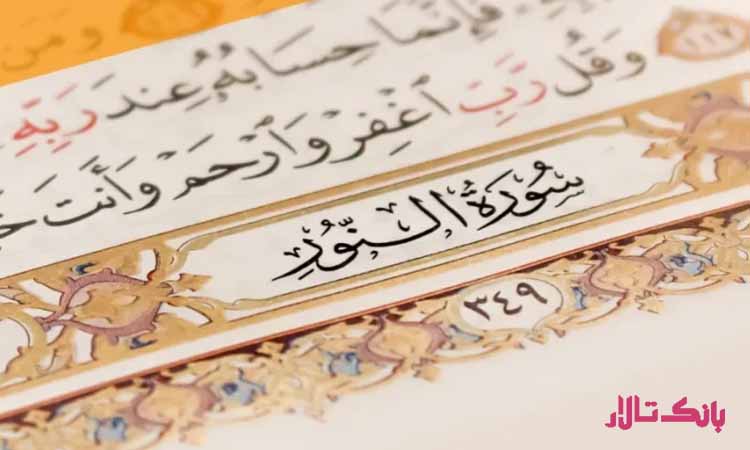 وَمَن
فَإِنَّمَا حِسَابُهُ عِندَ رَبِّهِ
١١٧ وَقُل رَبِّ ٱغْفِرْ وَٱرْحَمْ وَأَنتَ
سُورَةُ النُّورِ
٣٤٩
بانک تالار